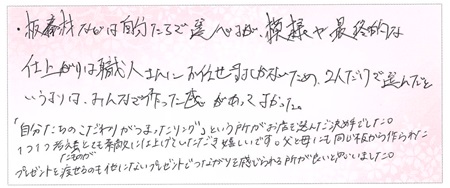 ・板素材などは自分たちで選んだが、模様や最終的な
仕上がりは職人さんにお任せするしかないため、2人だけで選んだと
いうよりは、みんなで作った感があってよかった。
「自分たちのこだわりがつまったリング」という所がお店を選んだ決め手でした。
1つ1つ考えたものがとても素敵に仕上げていただき嬉しいです。父と母にも同じ板から作られた
プレゼントを渡せるのも他にないプレゼントでつながりを感じられる所が良いと思いました。